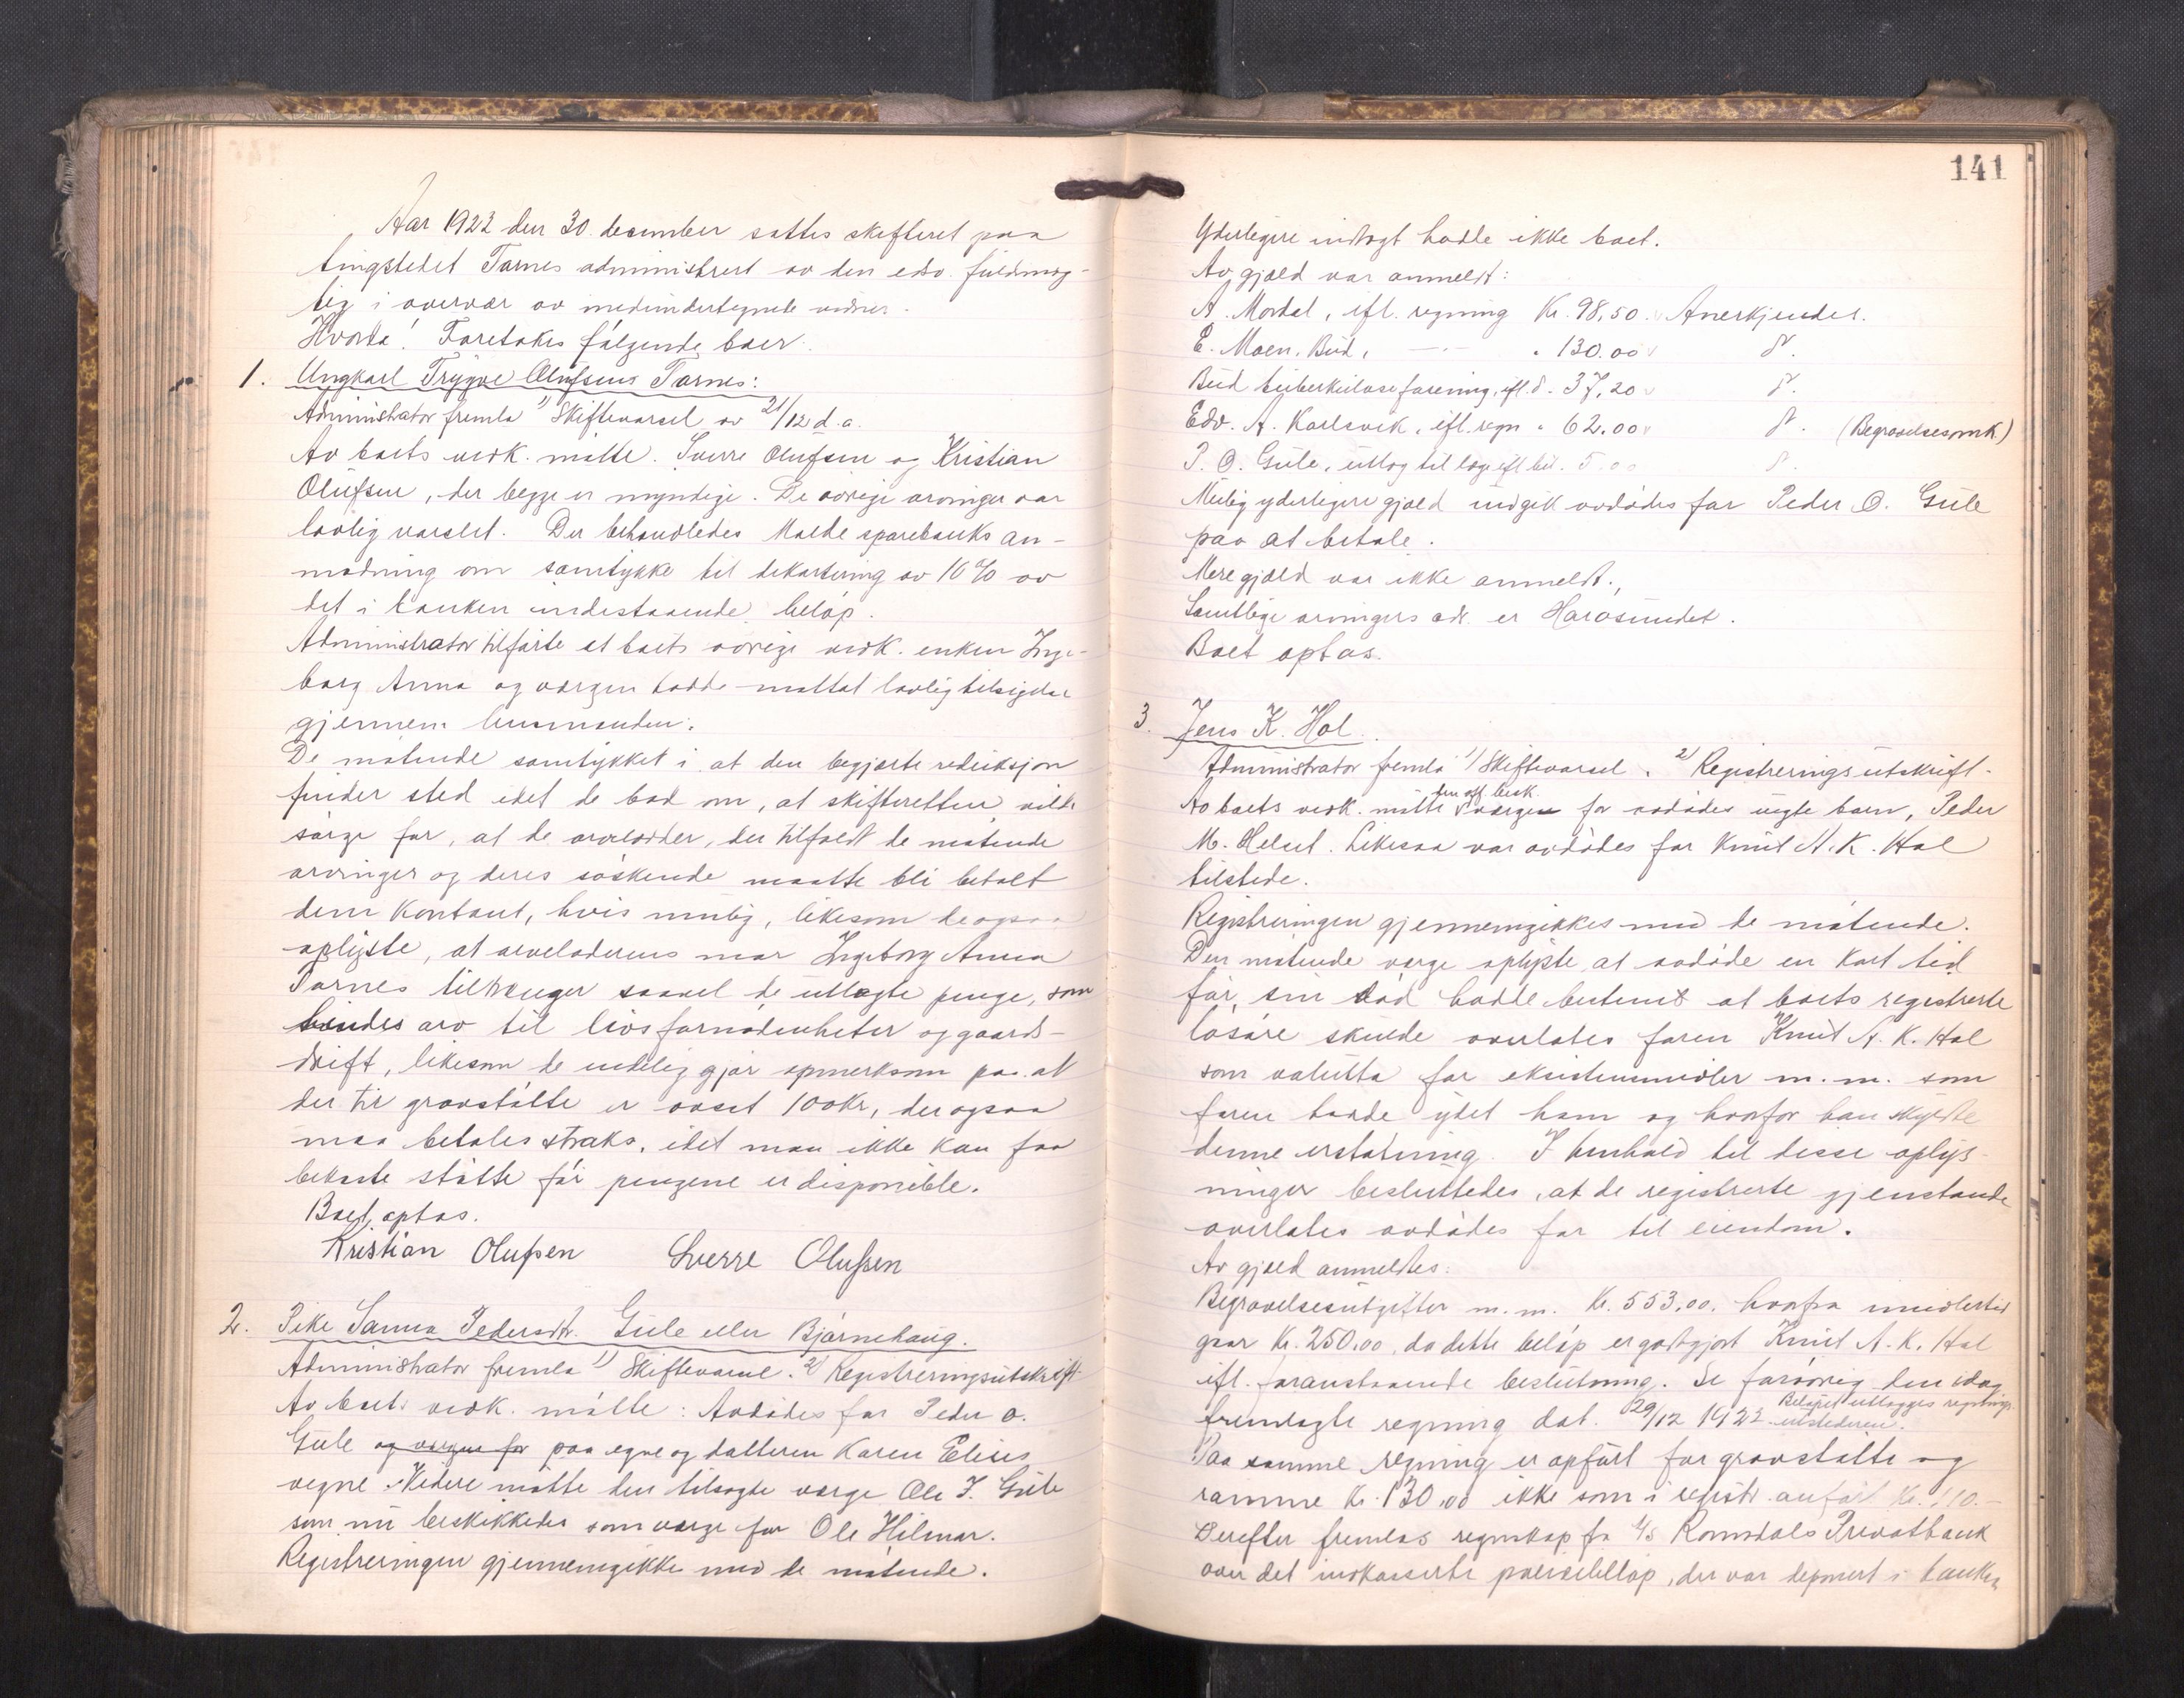 Aar 1922 den 30. december sattes skifteret paa
tingstedet Tornes administrert av den edsv. fuldmæg-
tig i overvær av medundertegnede vidner.
Hvorda! Foretokes følgende boer:
1. Ungkarl Trygve Olufsens Tornes:
Administrator fremla 1) Skiftevarsel av 21/12 d.a.
Av boets vedk. møtte. Sverre Olufsen og Kristian
Olufsen, der begge er myndige. De øvrige arvinger var
lovlig varslet. Der behandledes Molde sparebanks an-
modning om samtykke til dekortering av 10% av
det i banken indestaaende beløp.
Administrator tilførte at boets øvrige vedk. enken Inge-
borg Anna og værgen hadde mottat lovlig tilsigelse
gjennem lensmanden.
De møtende samtykket i at den begjærte reduksjon
finder sted idet de bad om, at skifteretten vilde
sørge for, at de arvelodder, der tilfaldt de møtende
arvinger og deres søskende maatte bli betalt
dem kontant, hvis mulig, likesom de ogsaa
oplyste, at arveladerens mor Ingeborg Anna
Tornes tiltrenger saavel de utlagte penge, som
hendes arv til livsfornødenheter og gaards-
drift, likesom de endelig gjør opmerksom paa at
der til gravstøtte er avsat 100 kr, der ogsaa
maa betales straks, idet man ikke kan faa
bekoste støtte før pengene er disponible.
Boet optas.
Kristian Olufsen Sverre Olufsen
2. Pike Sanna Pedersdtr. Gule eller Bjørnehaug.
Administrator fremla 1) Skiftevarsel. 2) Registreringsutskrift
Av boets vedk. møtte: Avdødes far Peder O.
Gule og værgen for paa egne og datteren Karen Elises
vegne. Videre møtte den tilsagte værge Ole J. Gule
som nu beskikkedes som værge for Ole Hilmar.
Registreringen gjennemgikkes med de møtende.
141
Yderligere indtægt hadde ikke boet.
Av gjæld var anmeldt:
A. Mordal, ifl. regning Kr. 98,50. Anerkjendes.
E. Moen. Bud, — " 130.00 do.
Bud tuberkuloseforening, ifl. d. 37,20 do.
Edv. A. Karlsvik, ifl. regn " 62.00 do. (Begravelsesomk.)
P. O. Gule, utlæg til læge ifl bil. 5.00 do.
Mulig yderligere gjæld indgik avdødes far Peder O. Gule
paa at betale.
Mere gjæld var ikke anmeldt.
Samtlige arvingers adr. er Harøsundet.
Boet optas.
3. Jens K. Hol.
Administrator fremla 1) Skiftevarsel. 2) Registreringsutskrift.
den off. besk.
Av boets vedk. møtte værgen for avdødes uegte barn, Peder
M. Helset. Likesaa var avdødes far Knut A. K. Hol
tilstede.
Registreringen gjennemgikkes med de møtende.
Den møtende værge oplyste at avdøde en kort tid
før sin død hadde bestemt at boets registrerte
løsøre skulde overlates faren Knut A. K. Hol
som valutta for eksistensmidler m.m. som
faren hadde ydet ham og hvorfor han skyldte
denne erstatning. I henhold til disse oplys-
ninger besluttedes, at de registrerte gjenstande
overlates avdødes far til eiendom.
Av gjæld anmeldtes:
Begravelsesutgifter m.m. Kr. 553,00. hvorfra imidlertid
gaar Kr. 250,00, da dette beløp er godtgjort Knut A. K. Hol
ifl. foranstaaende beslutning. Se forøvrig den idag
Beløpet utlægges regnings-
fremlagte regning dat. 29/12 1922 utstederen.
Paa samme regning er opført for gravstøtte og
ramme Kr. 130,00 ikke som i registr. anført Kr. 110.—
Derefter fremlas regnskap fra A/s Romsdals Privatbank
over det indkasserte beløp, der var deponert i banken